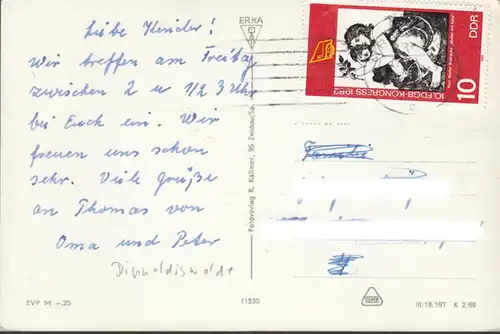 Liebe Kinder!
Wir treffen am Freitag
zwischen 2 u 1/2 3 Uhr
bei Euch ein. Wir
freuen uns schon
sehr. Viele Grüße
an Thomas von
Oma und Peter
Dippoldiswalde
EVP M –.25
11330
III/18/197 K 2/69
ERKA
Fotoverlag R. Kallmer, 95 Zwickau/Sa.
10. FDGB-KONGRESS 1982
DDR
10
Familie